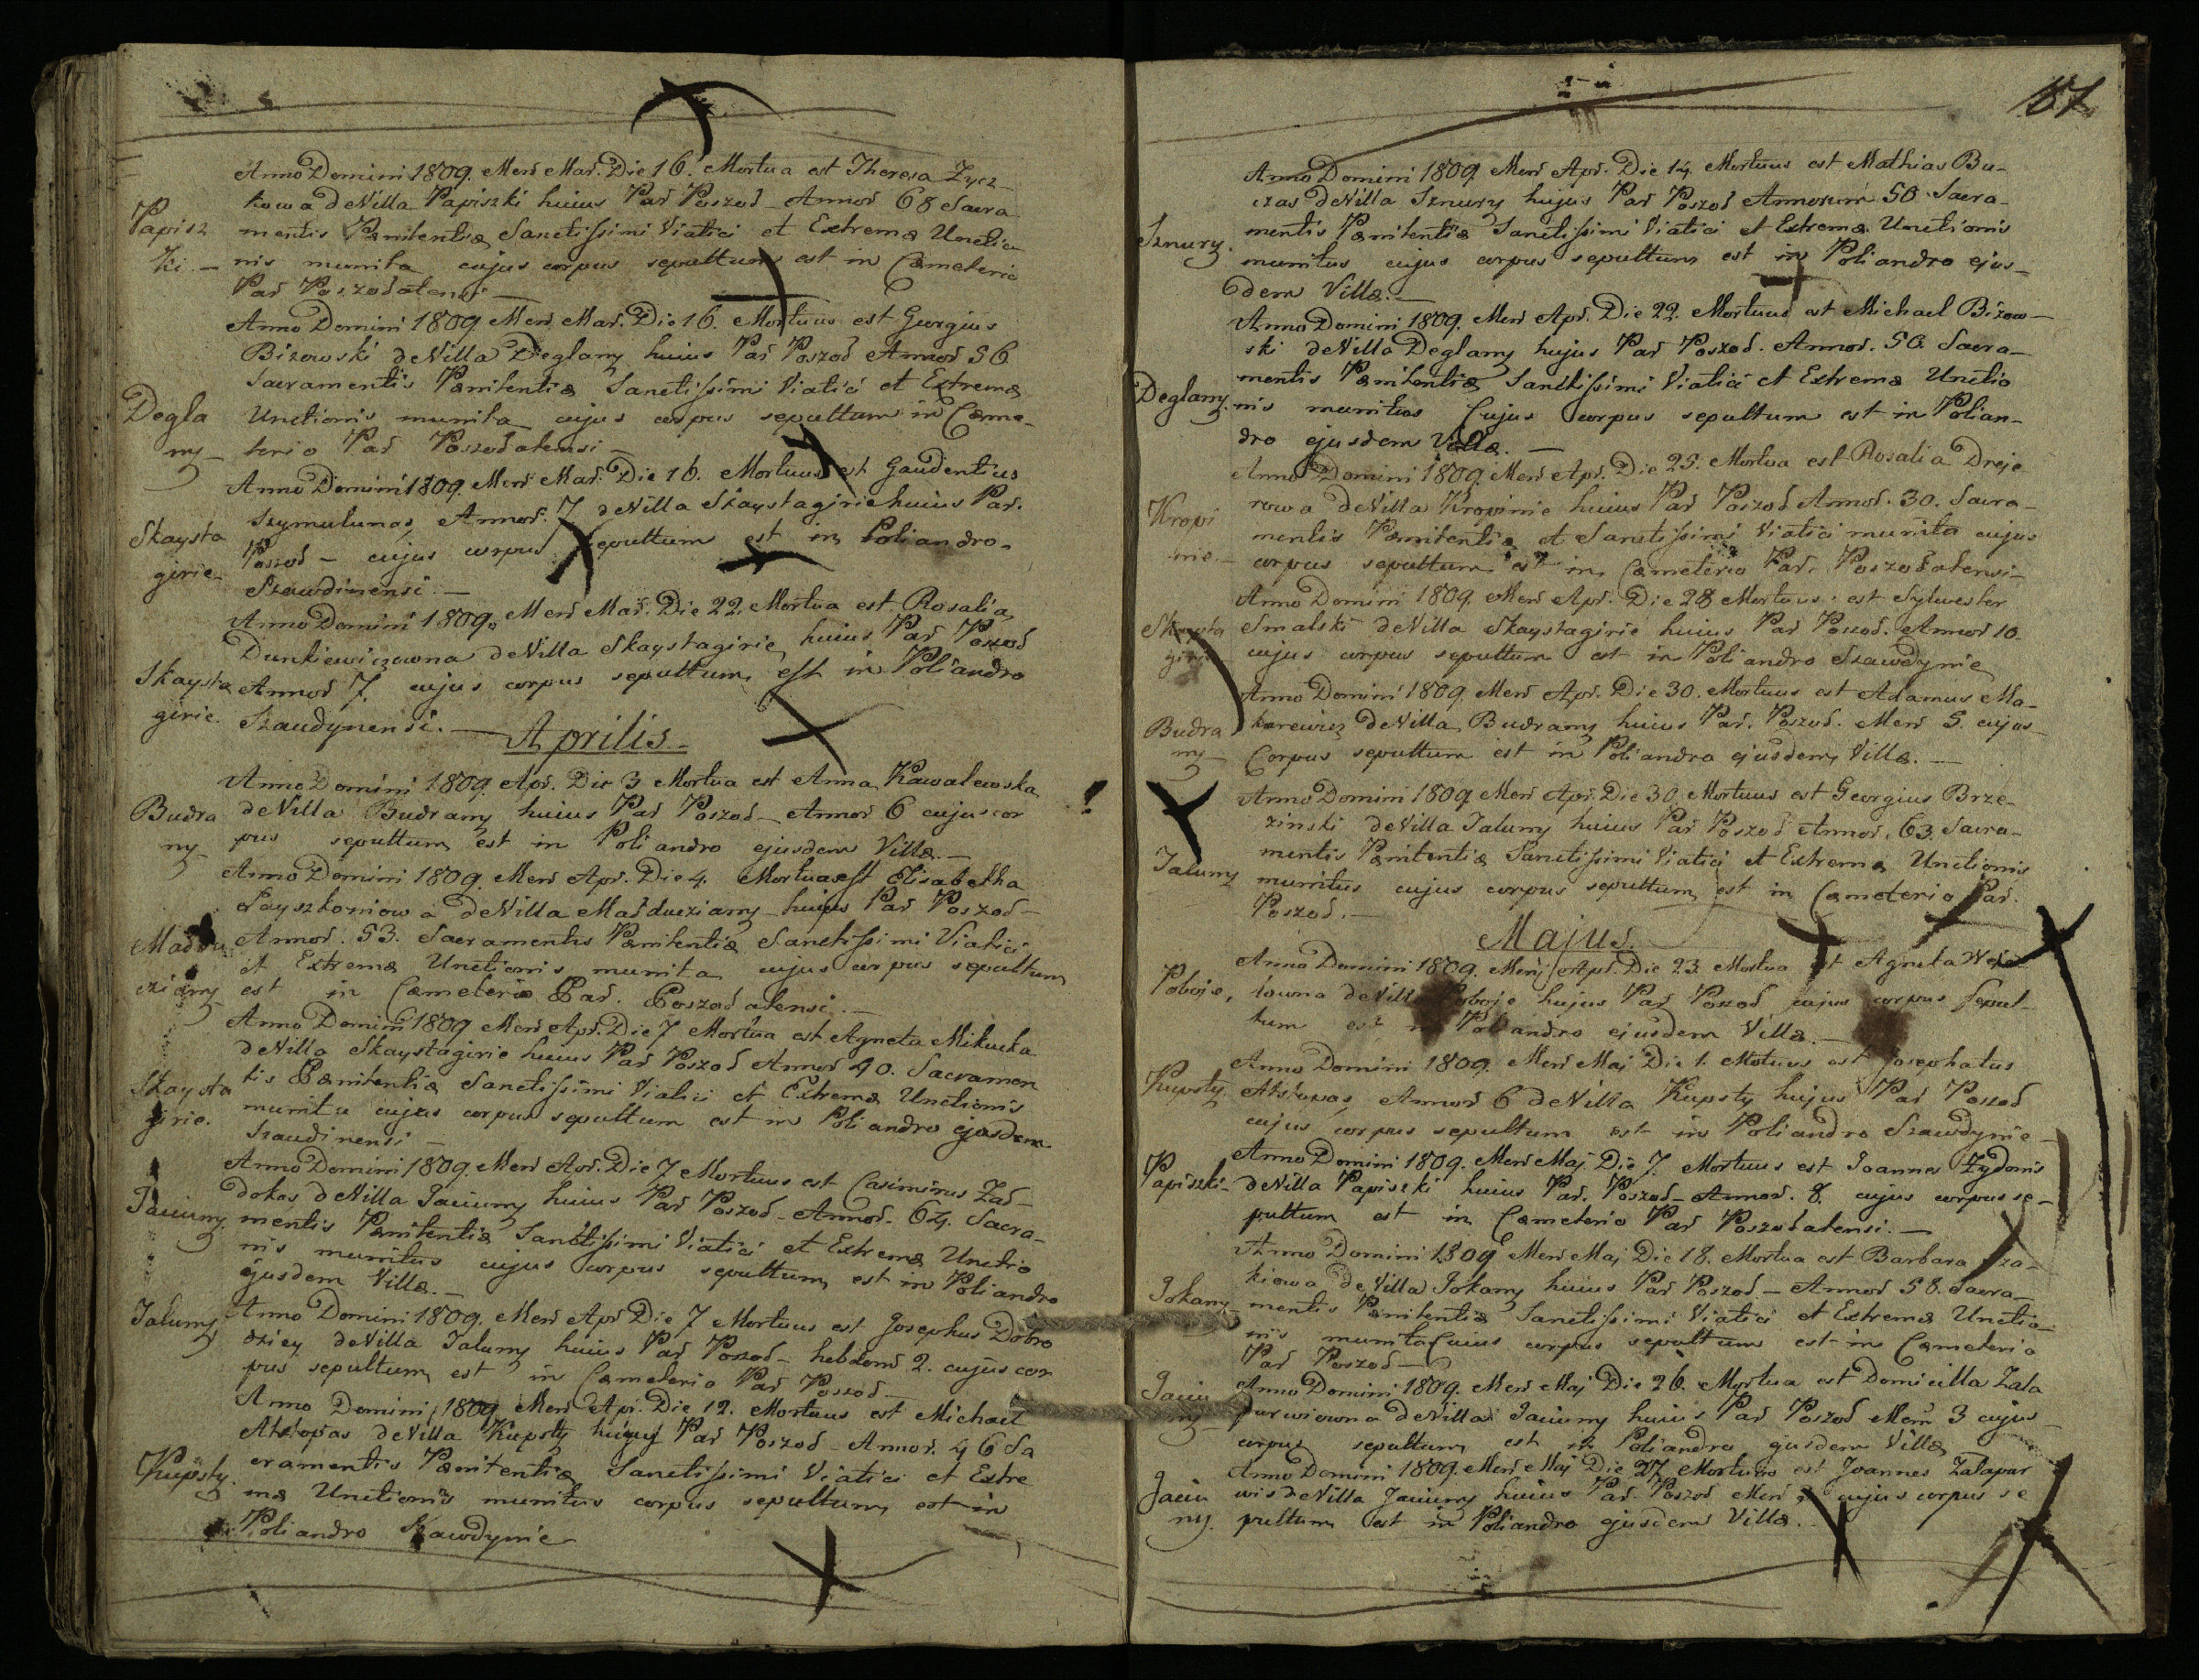 Anno Domini 1809. Mens Mar. Die 16. Mortua est Theresa Zycz-
kowa de Villa Papiszki huius Par Poszod Annor 68 Sacra
Papisz mentis Pænitentiæ Sanctissimi Viatici et Extremæ Unctio
ki - nis munita cujus corpus sepultum est in Cæmeterio
Par Poszodatensi -
Anno Domini 1809 Mens Mar. Die 16. Mortuus est Georgius
Bizowski de Villa Deglany huius Par Poszod Annor 56
Sacramentis Pænitentiæ Sanctissimi Viatici et Extremæ
Degla Unctionis munita cujus corpus sepultum in Cæme-
ny- terio Par Poszodatensi -
Anno Domini 1809. Mens Mar. Die 16. Mortuus est Gaudentius
Szymulunas Annor. 7 de Villa Skaystagirie huius Par.
Skaysta Poszod - cujus corpus sepultum est in Poliandro
girie- Szawdinensi. -
Anno Domini 1809. Mens Mar. Die 22. Mortua est Rosalia
Dunkiewiczowna de Villa Skaystagirie huius Par Poszod
Skaysta Annor 7. cujus corpus sepultum est in Poliandro
girie. Szaudynensi. -
Aprilis.
Anno Domini 1809. Apr. Die 3 Mortua est Anna Kawalewska
Budra de Villa Budrany huius Par Poszod - Annor 6 cujus cor
ny- pus sepultum est in Poliandro ejusdem Villæ. -
Anno Domini 1809. Mens Apr. Die 4. Mortua est Elisabetha
Layszkoniowa de Villa Madducziany huius Par Poszod -
Maddu Annor. 53. Sacramentis Pænitentiæ Sanctissimi Viatici
et Extremæ Unctionis munita cujus corpus sepultum
cziany est in Cæmeterio Par. Poszodatensi. -
Anno Domini 1809 Mens Apr. Die 7 Mortua est Agneta Mikucka
de Villa Skaystagirie huius Par Poszod Annor 40. Sacramen
Skaysta tis Pænitentiæ Sanctissimi Viatici et Extremæ Unctionis
girie. munita cujus corpus sepultum est in Poliandro ejusdem
Szaudinensi -
Anno Domini 1809. Mens Apr. Die 7 Mortuus est Casimirus Zad-
dokas de Villa Jaciuny huius Par Poszod - Annor. 64. Sacra-
Jaciuny. mentis Pænitentiæ Sanctissimi Viatici et Extremæ Unctio
nis munitus cujus corpus sepultum est in Poliandro
ejusdem Villæ. -
Jaluny Anno Domini 1809. Mens Apr Die 7 Mortuus est Josephus Dobro
dziey de Villa Jaluny huius Par Poszod - hebdom 2. cujus cor
pus sepultum est in Cæmeterio Par Poszod -
Anno Domini 1809 Mens Apr. Die 12. Mortuus est Michael
de Villa Kupsty hujus Par Poszod - Annor. 46 Sa
Kupsty. cramentis Pænitentiæ Sanctissimi Viatici et Extre
mæ Unctionis munitus corpus sepultum est in
Poliandro Szawdynie
87
Anno Domini 1809 Mens Apr. Die 14. Mortuus est Mathias Bu-
czas de Villa Sznury hujus Par Poszod Annorum 50 Sacra-
Sznury. mentis Pænitentiæ Sanctissimi Viatici et Extremæ Unctionis
munitus cujus corpus sepultum est in Poliandro ejus-
dem Villæ. -
Anno Domini 1809. Mens Apr. Die 22. Mortuus est Michael Bizow-
ski de Villa Deglany hujus Par Poszod. Annor. 50. Sacra-
mentis Pænitentiæ Sanctissimi Viatici et Extremæ Unctio
Deglany. nis munitus Cujus corpus sepultum est in Polian-
dro ejusdem Villæ. -
Anno Domini 1809. Mens Apr. Die 25. Mortua est Rosalia Dreje
Kropi rowa de Villa Kropinie huius Par Poszod Annor. 30. Sacra-
mentis Pænitentiæ et Sanctissimi Viatici munita cujus
nie. - corpus sepultum est in Cæmeterio Par. Poszodatensi -
Anno Domini 1809. Mens Apr. Die 28 Mortuus est Sylwester
Skaysta Smalski de Villa Skaystagirie huius Par Poszod. Annor 10.
girie cujus corpus sepultum est in Poliandro Szawdynie
Anno Domini 1809. Mens Apr. Die 30. Mortuus est Adamus Ma-
Budra karewicz de Villa Budrany huius Par. Poszod. Mens 5. cujus
ny- Corpus sepultum est in Poliandro ejusdem Villæ. -
Anno Domini 1809 Mens Apr. Die 30. Mortuus est Georgius Brze-
zinski de Villa Jaluny huius Par Poszod Annor. 63 Sacra-
mentis Pænitentiæ Sanctissimi Viatici et Extremæ Unctionis
Jaluny munitus cujus corpus sepultum est in Cæmeterio Par.
Poszod. -
Majus.
Anno Domini 1809. Mens Apr. Die 23. Mortua est Agneta
Poboje, de Villa Poboje hujus Par Poszod cujus corpus sepul-
tum est in Poliandro ejusdem Villæ. -
Anno Domini 1809. Mens Maj Die 1. Motuus est Josephatus
Kupsty Annor 6 de Villa Kupsty hujus Par Poszod
cujus corpus sepultum est in Poliandro Szawdynie -
Anno Domini 1809. Mens Maj. Die 7. Mortuus est Joannes Zydonis
Papiszki- de Villa Papiszki huius Par. Poszod - Annor. 8. cujus corpus se-
pultum est in Cæmeterio Par Poszodatensi. -
Anno Domini 1809 Mens Maj Die 18. Mortua est Barbara
kiowa de Villa Jokany huius Par Poszod - Annor 58. Sacra-
Jokany- mentis Pænitentiæ Sanctissimi Viatici et Extremæ Unctio-
nis munita Cuius corpus sepultum est in Cæmeterio
Par Poszod -
Jaciu Anno Domini 1809. Mens Maj Die 26. Mortua est Domicilla Zala
ny- purwiowna de Villa Jaciuny huius Par Poszod Mens 3 cujus
corpus sepultum est in Poliandro ejusdem Villæ
Anno Domini 1809. Mens Maj Die 27 Mortuus est Joannes Zalapur
Jaciu wis de Villa Jaciuny huius Par. Poszod Mens cujus corpus se
ny. pultum est in Poliandro ejusdem Villæ.